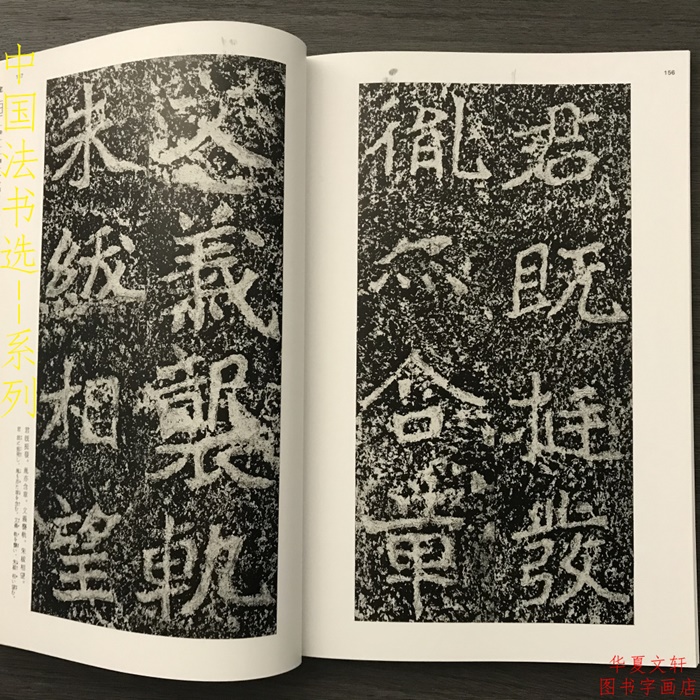 156
君既挺發
胤亦含章
文義襲軌
朱紱相望
中国法书选——系列
华夏文轩
图书字画店